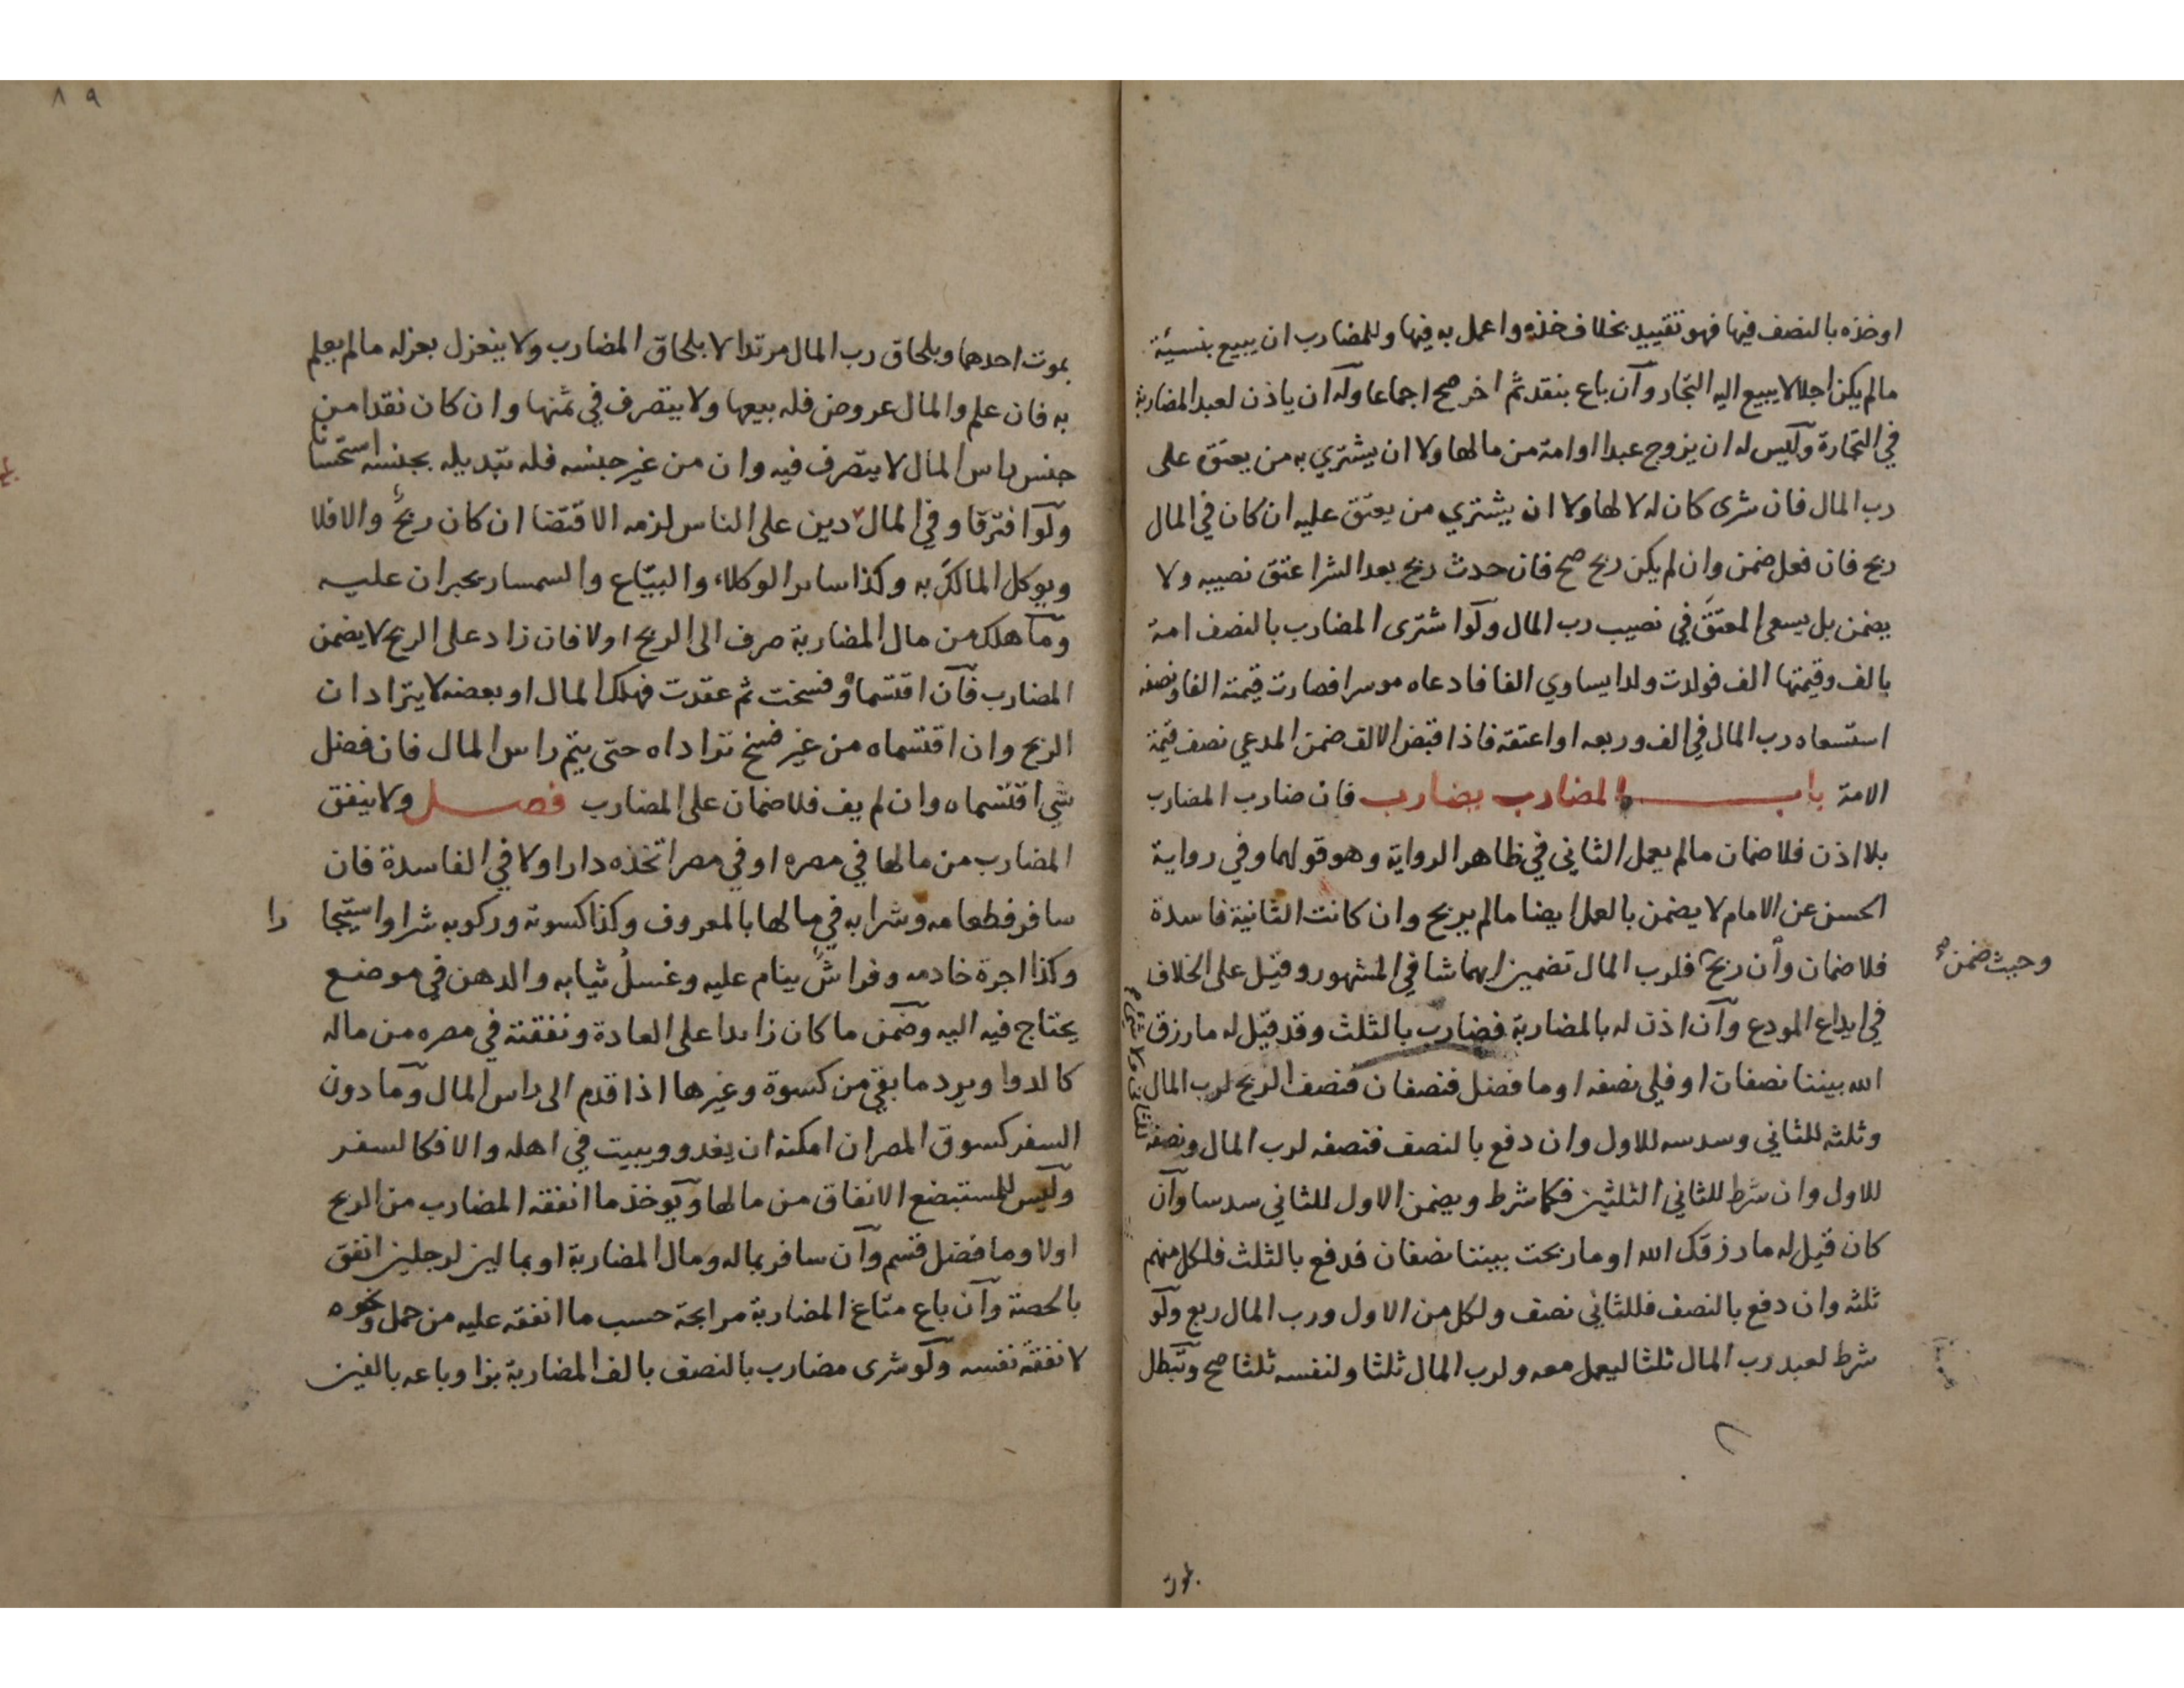 او خذه بالنصف فيها فهو تقييد بخلاف خذه واعمل به فيها وللمضارب ان يبيع بنسيئة
مالم يكن اجلا لا يبيع اليه التجار وان باع بنقد ثم اخر صح اجماعا وله ان ياذن لعبد المضاربة
في التجارة وليس له ان يزوج عبدا او امة من مالها ولا ان يشتري به من يعتق على
رب المال فان شرى كان له لا لها ولا ان يشتري من يعتق عليه ان كان في المال
ربح فان فعل ضمن وان لم يكن ربح صح فان حدث ربح بعد الشرا عتق نصيبه ولا
يضمن بل يسعى المعتق في نصيب رب المال ولو اشترى المضارب بالنصف امة
بالف وقيمتها الف فولدت ولدا يساوي الفا فادعاه موسرا فصارت قيمته الفا ونصفه
استسعاه رب المال في الف وربعه او اعتقه فاذا قبض الالف ضمن المدعي نصف قيمة
الامة باب المضارب يضارب فان ضارب المضارب
بلا اذن فلا ضمان مالم يعمل الثاني في ظاهر الرواية وهو قولهما وفي رواية
الحسن عن الامام لا يضمن بالعمل ايضا مالم يربح وان كانت الثانية فاسدة
فلا ضمان وان ربح فلرب المال تضمين ايهما شا في المشهور وقيل على الخلاف
وحيث ضمن صح
في ايداع المودع وان اذن له بالمضاربة فضارب بالثلث وقد قيل له ما رزق
الله بيننا نصفان او فلي نصفه او ما فضل فنصفان فنصف الربح لرب المال
وثلثه للثاني وسدسه للاول وان دفع بالنصف فنصفه لرب المال ونصفه
للثاني ولا شيء
للاول وان شرط للثاني الثلثين فكما شرط ويضمن الاول للثاني سدسا وان
كان قيل له ما رزقك الله او ما ربحت بيننا نصفان فدفع بالثلث فلكل منهم
ثلثه وان دفع بالنصف فللثاني نصف ولكل من الاول ورب المال ربع ولو
شرط لعبد رب المال ثلثا ليعمل معه ولرب المال ثلثا ولنفسه ثلثا صح وتبطل
بموت
٨٩
بموت احدهما وبلحاق رب المال مرتدا لا بلحاق المضارب ولا ينعزل بعزله مالم يعلم
به فان علم والمال عروض فله بيعها ولا يتصرف في ثمنها وان كان نقدا من
جنس راس المال لا يتصرف فيه وان من غير جنسه فله تبديله بجنسه استحسانا
ولو افترقا وفي المال دين على الناس لزمه الاقتضا ان كان ربح والا فلا
ويوكل المالك به وكذا ساير الوكلاء والبياع والسمسار يجبران عليه
وما هلك من مال المضاربة صرف الى الربح اولا فان زاد على الربح لا يضمن
المضارب فان اقتسماه وفسخت ثم عقدت فهلك المال او بعضه لا يترادان
الربح وان اقتسماه من غير فسخ ترادّاه حتى يتم راس المال فان فضل
شي اقتسماه وان لم يف فلا ضمان على المضارب فصل ولا ينفق
المضارب من مالها في مصره او في مصر اتخذه دارا ولا في الفاسدة فان
سافر فطعامه وشرابه في مالها بالمعروف وكذا كسوته وركوبه شرا واستيجا را
وكذا اجرة خادمه وفراش ينام عليه وغسل ثيابه والدهن في موضع
يحتاج فيه اليه وضمن ما كان زايدا على العادة ونفقته في مصره من ماله
كالدوا ويرد ما بقي من كسوة وغيرها اذا قدم الى راس المال وما دون
السفر كسوق المصر ان امكنه ان يغدو ويبيت في اهله والا فكالسفر
وليس للمستبضع الانفاق من مالها ويوخذ ما انفقه المضارب من الربح
اولا وما فضل قسم وان سافر بماله ومال المضاربة او بمالين لرجلين انفق
بالحصة وان باع متاع المضاربة مرابحة حسب ما انفقه عليه من حمل ونحوه
لا نفقة نفسه ولو شرى مضارب بالنصف بالف المضاربة بزا وباعه بالفين